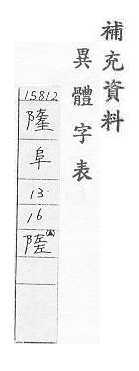 補充資料
異體字表
15812
阜
13
16